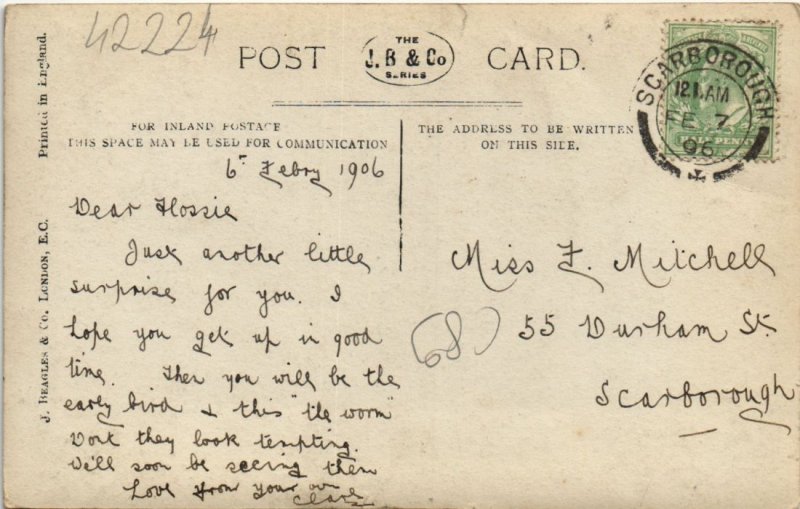 42224
POST CARD.
THE
J. B & Co
SERIES
Printed in England.
J. BEAGLES & Co. LONDON, E.C.
FOR INLAND POSTAGE
THIS SPACE MAY BE USED FOR COMMUNICATION
THE ADDRESS TO BE WRITTEN
ON THIS SIDE.
SCARBOROUGH
12.1.AM
FE 7
06
HALF PENNY
6th Febry 1906
Dear Flossie
Just another little
surprise for you. I
hope you get up in good
time. Then you will be the
early bird & this "the worm"
Dont they look tempting.
We'll soon be seeing them
Love from your own
Clare
Miss F. Mitchell
68
55 Durham St.
Scarborough